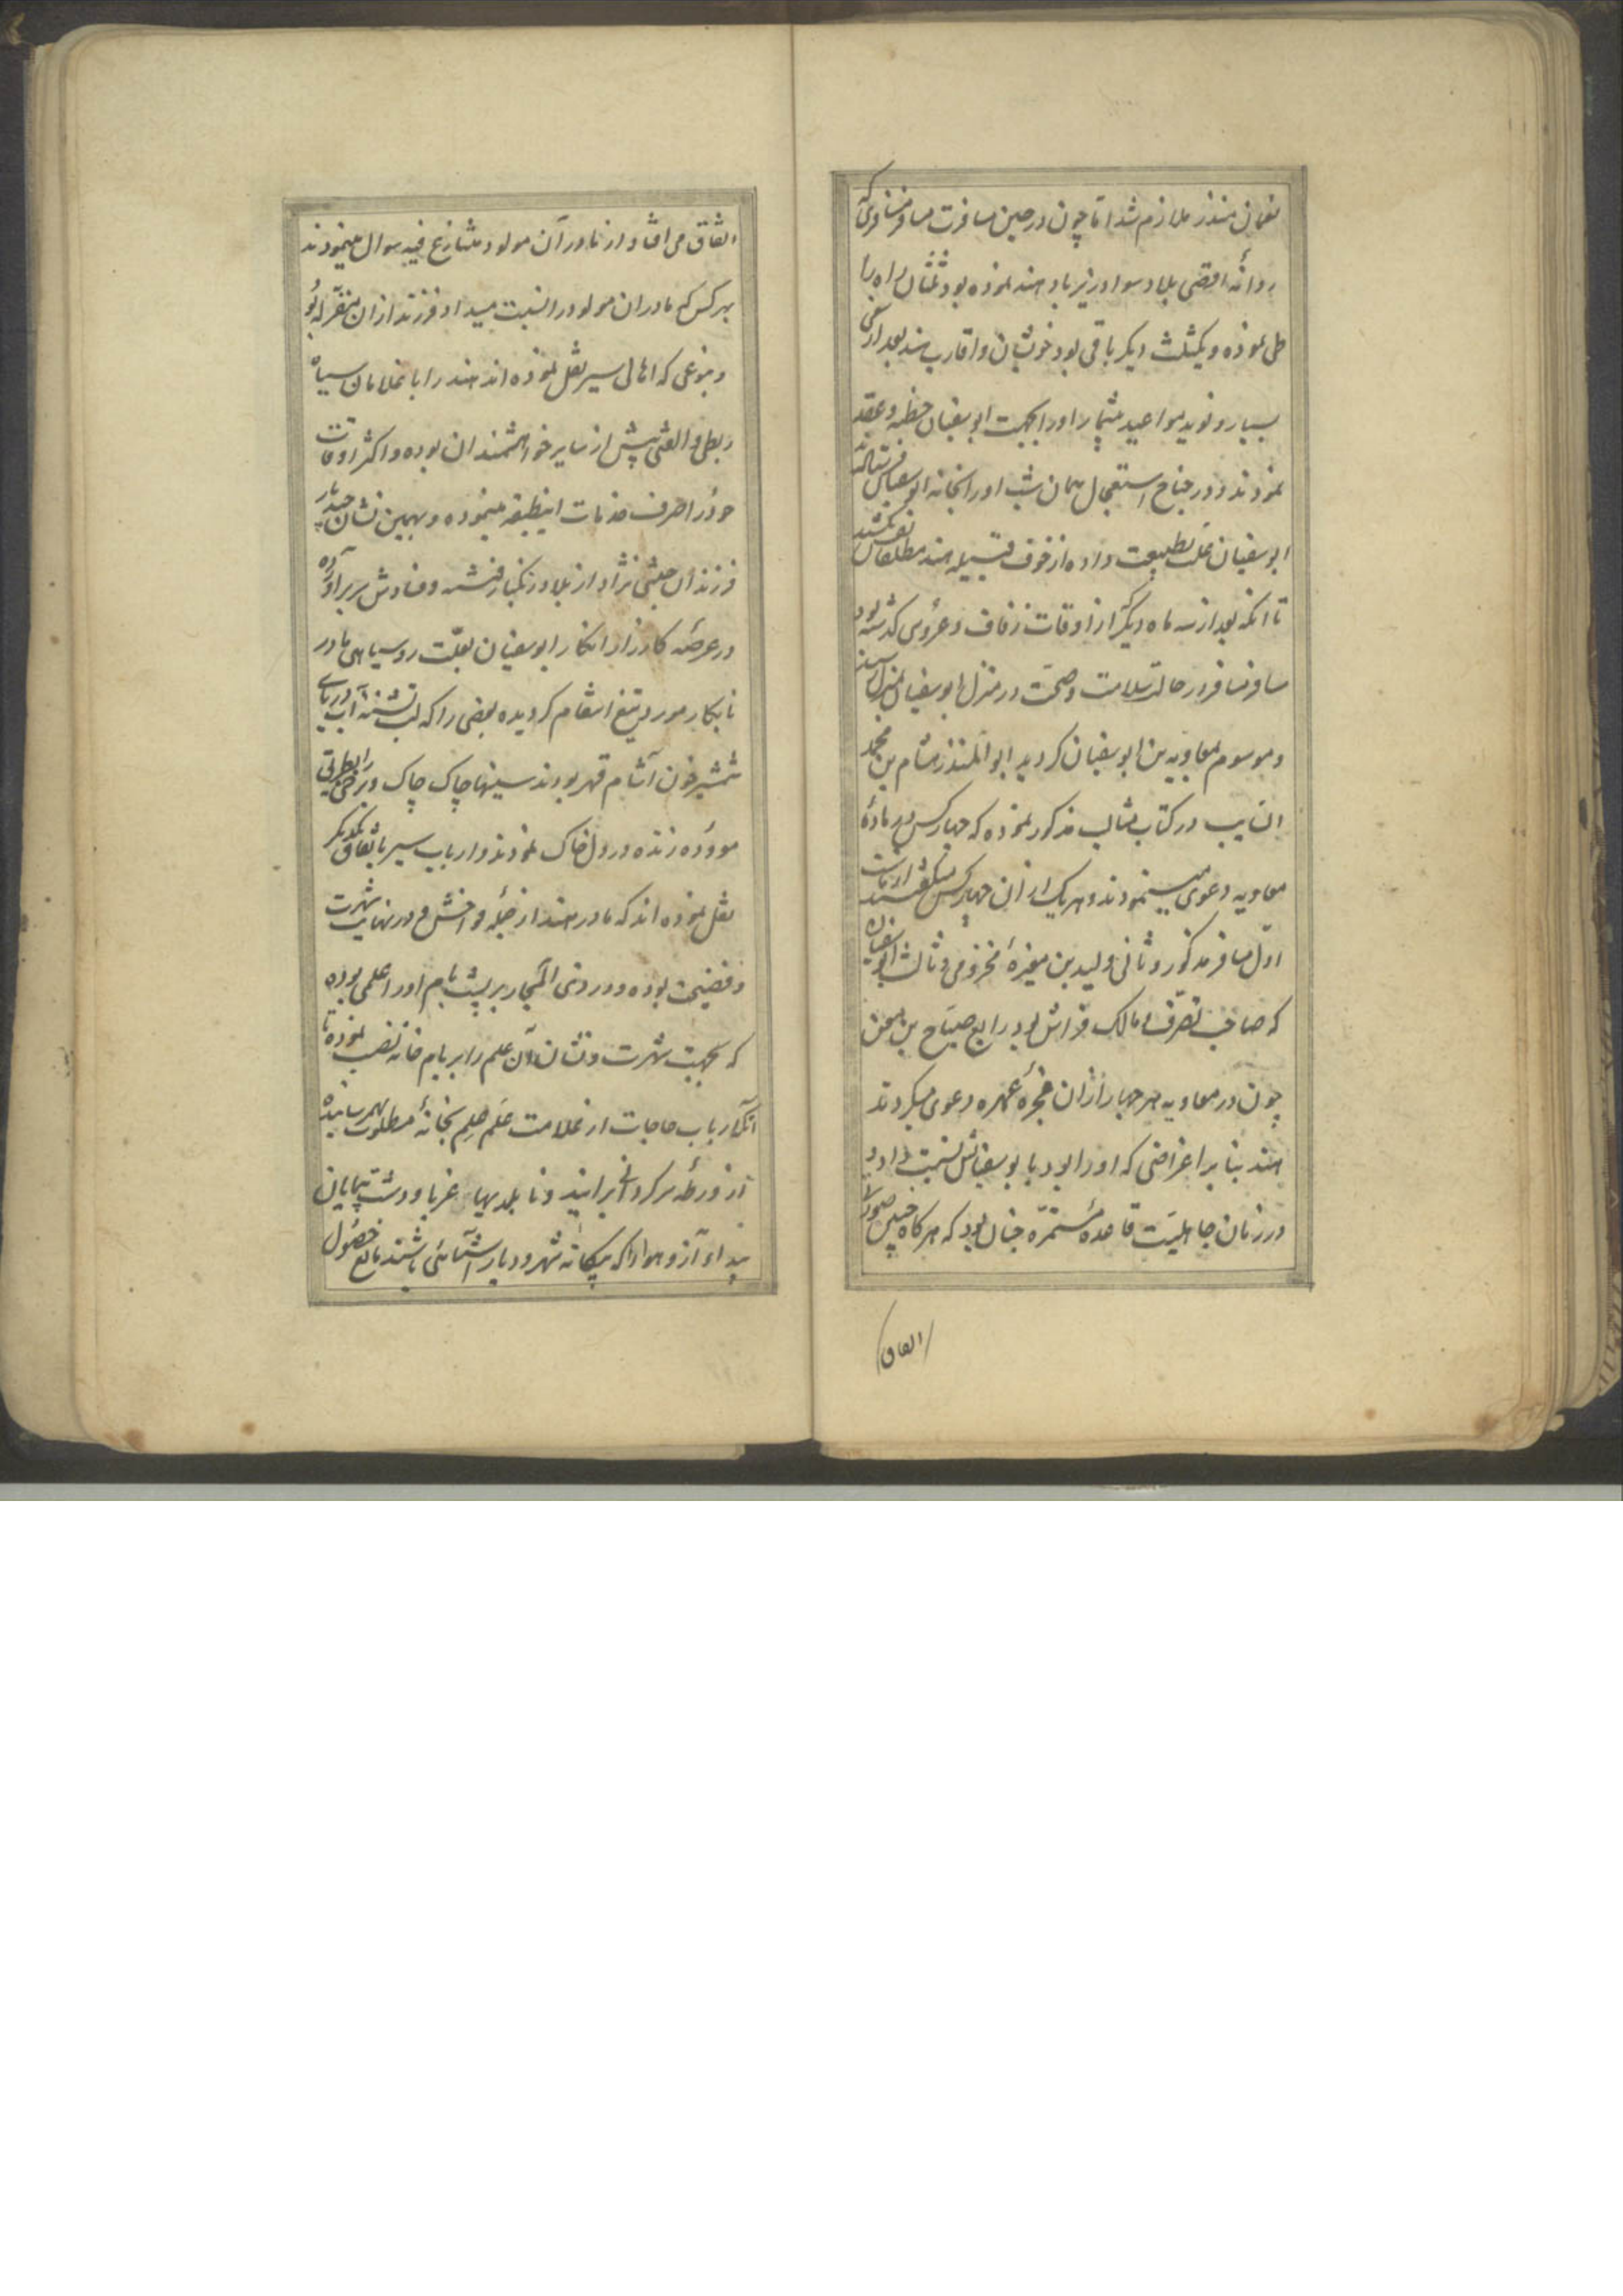 نعمان منذر ملازم شد اما چون در حین مسافرت مسافر مسافری که
روانهٔ اقصی بلاد سواد زیرباد هند نموده بود ثلثان راه را
طی نموده و یکثلث دیگر باقی بود خویشان و اقارب هند بعد از سعی
بسیار و نوید مواعید بیشمار او را بجهت ابوسفیان خطبه و عقد
نمودند و در جناح استعجال همان شب او را بخانه ابوسفیان فرستادند
ابوسفیان بطبیعت داده از خوف قبیله هند مطلقا نفس نکشید
تا انکه بعد از سه ماه دیگر از اوقات زفاف و عروسی کذشته بود
مسافر مسافر در حالت سلامت و صحت در منزل ابوسفیان بمنزل رسید
و موسوم بمعاویه بن ابوسفیان کردید ابوالمنذر هشام بن محمد
السایب در کتاب مثالب مذکور نموده که چهار کس در مادهٔ
معاویه دعوی مینمودند و هر یک از ان چهار کس
اول مسافر مذکور و ثانی ولید بن مغیرهٔ مخزومی و ثالث ابوسفیان
که صاحب تصرف و مالک فراش بود رابع صباح بن
چون در معاویه هر چهار ازان فجرهٔ عهره دعوی میکردند
هند بنا بر اغراضی که او را بود بابوسفیانش نسبت داد و
در زمان جاهلیت قاعدهٔ مستمره چنان بود که هرکاه چنین صورتی
اتفاق
اتفاق می افتاد از مادر آن مولود متنازع فیه سوال مینمودند
بهر کس که مادر ان مولود را نسبت میداد فرزند از ان
و بنوعی که اهالی سیر نقل نموده اند هند را با غلامان سیاه
ربط و الفتی بیش از سایر خواهشمندان بوده و اکثر اوقات
خود را صرف خدمات اینطبقه مینموده و بهمین نشان چندبار
فرزندان حبشی نژاد از بلاد زنکبار
در عرصه کارزار انکار ابوسفیان بعلت روسیاهی مادر
نابکار مورد تیغ انتقام کردیده بعضی را که لب تشنه آب دریای
شمشیر خون آشام قهر بودند سینها چاک چاک و برخی را بطریق
موؤده زنده در دل خاک نمودند و ارباب سیر باتفاق یکدیکر
نقل نموده اند که مادر هند از جمله فواحش و در نهایت شهرت
و فضیحت بوده و در ذی المجاز بر پشت بام او را علمی بوده
که بجهت شهرت و نشان آن علم را بر بام خانه نصب نموده تا
آنکه ارباب حاجات از علامت علم علم بخانهٔ مطلوب بهم رسانیده
از ورطهٔ سرکردانی برایند و نابلدیها غربا و دشت پیمایان
بیدا و آز و هوا را که بیکانه شهر و دیار آشنائی باشند مانع حصول